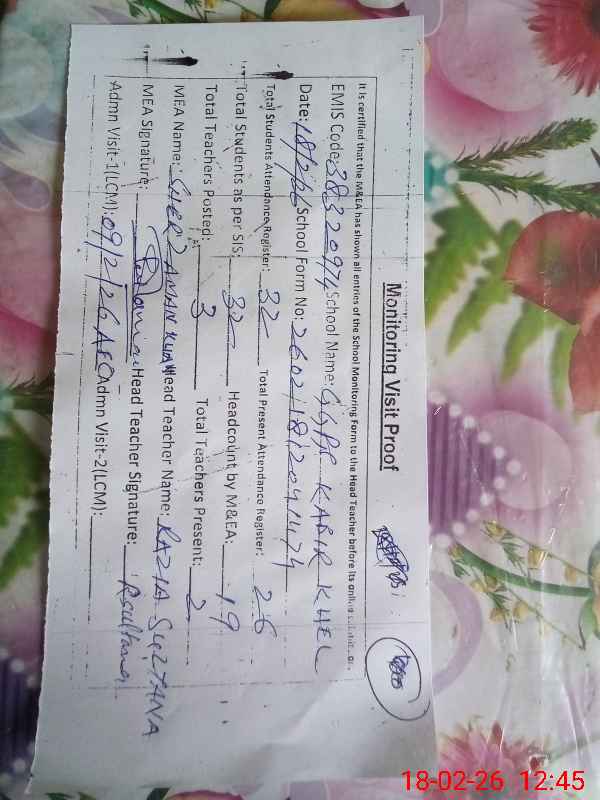 Monitoring Visit Proof
It is certified that the M&EA has shown all entries of the School Monitoring Form to the Head Teacher before its online
EMIS Code: 38320974 School Name: GGPS KABIR KHEL
Date: 18/2/26 School Form No:
Total Students Attendance Register: 32 Total Present Attendance Register: 26
Total Students as per SIS: 32 Headcount by M&EA: 19
Total Teachers Posted: 3 Total Teachers Present: 2
MEA Name: SHER ZAMAN KHAN Head Teacher Name: RAZIA SULTANA
MEA Signature: Head Teacher Signature: Rsultana
Admn Visit-1(LCM): 09/2/26 Admn Visit-2(LCM):
18-02-26 12:45